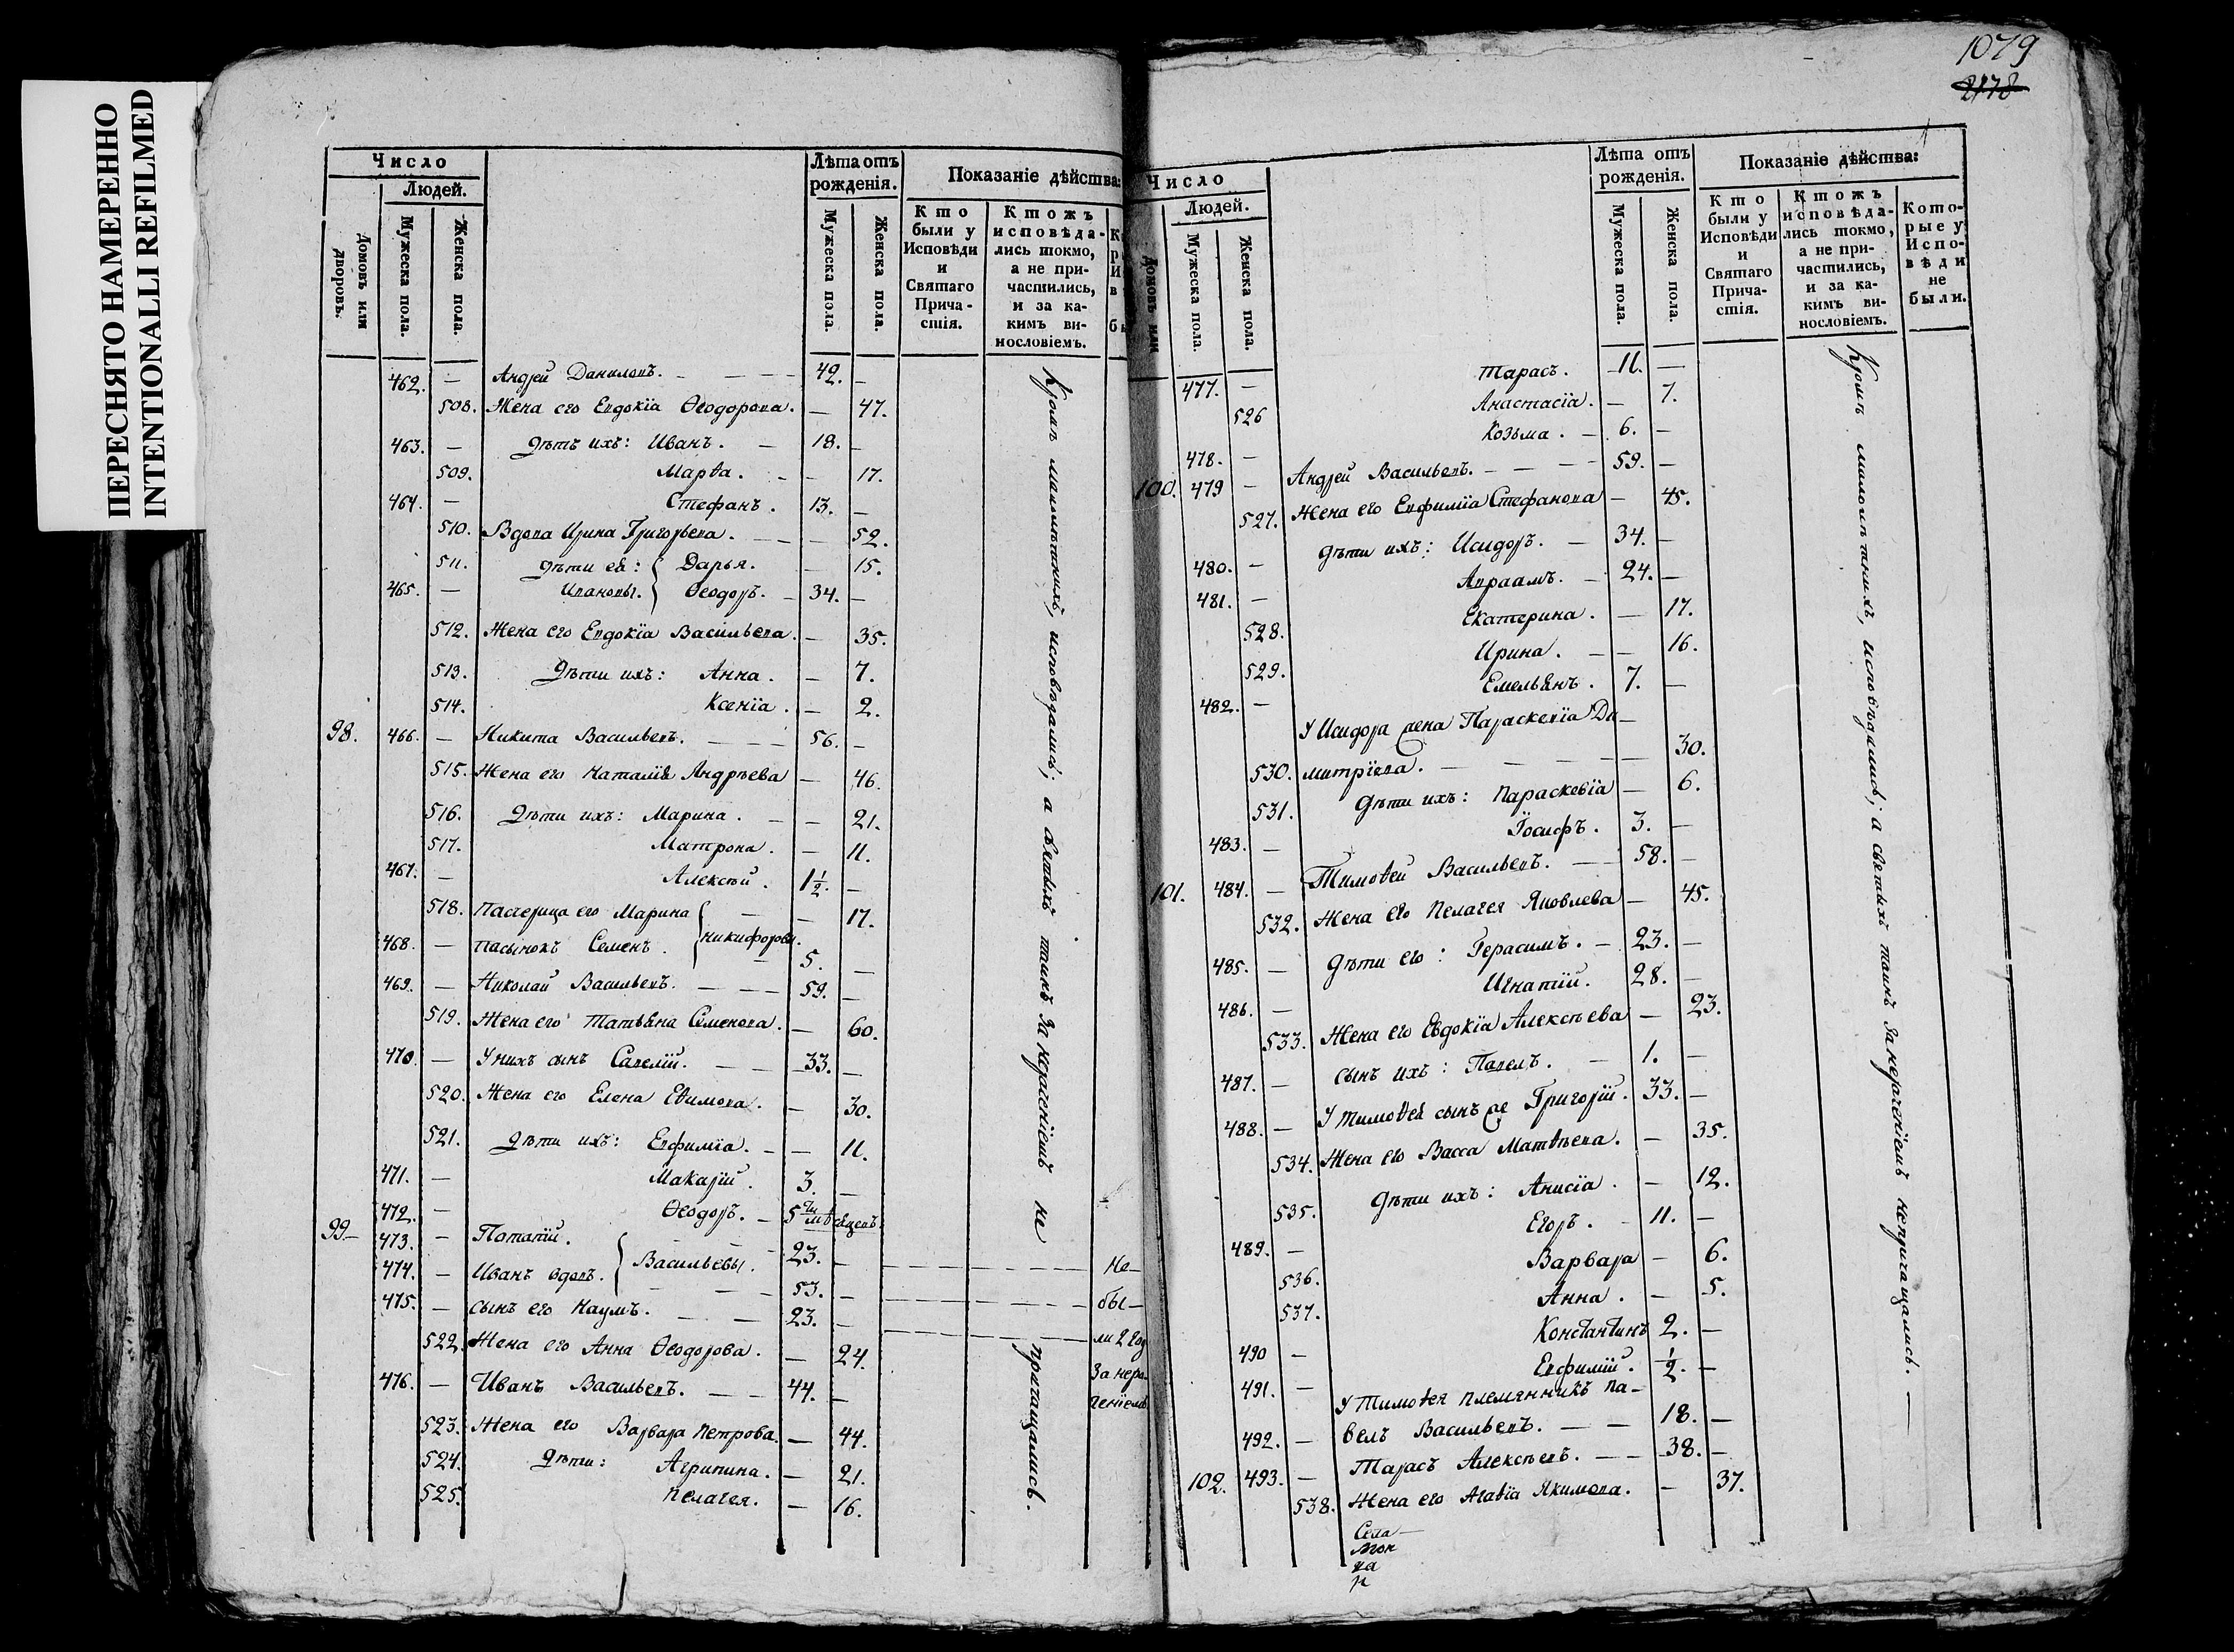 ПЕРЕСНЯТО НАМЕРЕННО
INTENTIONALLI REFILMED
Число
Людей.
Домовъ или дворовъ.
Мужеска пола.
Женска пола.
Лѣта отъ рожденія.
Мужеска пола.
Женска пола.
Показаніе дѣйства:
Кто были у Исповѣди и Святаго Причастія.
Ктожъ исповѣдались токмо, а не причастились, и за какимъ винословіемъ.
462. — Андрей Даниловъ. — — — 42. —
508. Жена его Евдокіа Ѳеодорова. — 47.
463. — Дѣтъ ихъ: Иванъ. — 18. —
509. Марѳа. — — 17.
464. — Стефанъ. 13. —
510. Вдова Ирина Григорьева. — — — 52.
511. Дѣти ея: Дарья. — 15.
465. — Ивановы. Ѳеодоръ. — 34. —
512. Жена его Евдокіа Васильева. — 35.
513. Дѣти ихъ: Анна. — 7.
514. Ксеніа. — 2.
98. 466. — Никита Васильевъ. — — — 56. —
515. Жена его Наталія Андрѣева — 46.
516. Дѣти ихъ: Марина. — — 21.
517. Матрона. — 11.
467. — Алексѣй. 1 1/2. —
518. Пасчерица его Марина — — 17.
468. — Пасынокъ Семенъ. Никифоровы. — 5. —
469. — Николай Васильевъ. — — — 59. —
519. Жена его Татьяна Семенова. — 60.
470. — У нихъ сынъ Савелій. — — — 33. —
520. Жена его Елена Еѳимова. — 30.
521. Дѣти ихъ: Евфиміа. — — 11.
471. — Макарій. 3. —
472. — Ѳеодоръ. — 5ти мѣсяцевъ
99 — 473. — Потапій. — — — 23. —
474. — Иванъ вдовъ. Васильевы. — — — 53. —
475. — сынъ его Наумъ. — — 23. —
522. Жена его Анна Ѳеодорова. — 24.
476. — Иванъ Васильевъ. — — 44. —
523. Жена его Варвара Петрова. — 44.
524. Дѣти: Агрипина. — 21.
525. Пелагея. — 16.
Кромѣ малолѣтнихъ, исповѣдались; а святыхъ таинъ за нераченіемъ не причащались.
Не—
бы—
ли 2 год
За нера—
ченіемъ
1079
2178
Число
Людей.
Домовъ или
Мужеска пола.
Женска пола.
Лѣта отъ рожденія.
Мужеска пола.
Женска пола.
Показаніе дѣйства:
Кто были у Исповѣди и Святаго Причастія.
Ктожъ исповѣдались токмо, а не причастились, и за какимъ винословіемъ.
Которые у Исповѣди не были.
477. — Тарасъ. — 11. —
526 Анастасіа. — 7.
478. — Козьма. — 6. —
100. 479 — Андрей Васильевъ. — — — 59. —
527. Жена его Евфиміа Стефанова — 45.
480. — Дѣти ихъ: Исидоръ. — 34. —
481. — Авраамъ. — 24. —
528. Екатерина. — 17.
529. Ирина. — — 16.
482. — Емельянъ. 7. —
У Исидора жена Параскевіа Ди—
530. митріева. — — — — 30.
531. Дѣти ихъ: Параскевіа — 6.
483. — Іосифъ. 3. —
101. 484. — Тимоѳей Васильевъ. — — 58. —
532. Жена его Пелагея Яковлева — 45.
485. — Дѣти его: Герасимъ. — 23. —
486. — Игнатій. 28. —
533. Жена его Евдокіа Алексѣева — 23.
487. — сынъ ихъ: Павелъ. — 1. —
488. — У Тимоѳея сынъ же Григорій. 33. —
534. Жена его Васса Матѳѣева. — 35.
535. Дѣти ихъ: Анисіа. — 12.
489. — Егоръ. — 11. —
536. Варвара — 6.
537. Анна. — 5.
490 — Константинъ 2. —
491. — Евфимій. 1/2. —
У Тимоѳея племянникъ Па—
492. — велъ Васильевъ. — — 18. —
102. 493. — Тарасъ Алексѣевъ. — — 38. —
538. Жена его Агаѳіа Якимова. — 37.
Кромѣ малолѣтнихъ, исповѣдались; а святыхъ таинъ за нераченіемъ непричащались. —
Села —